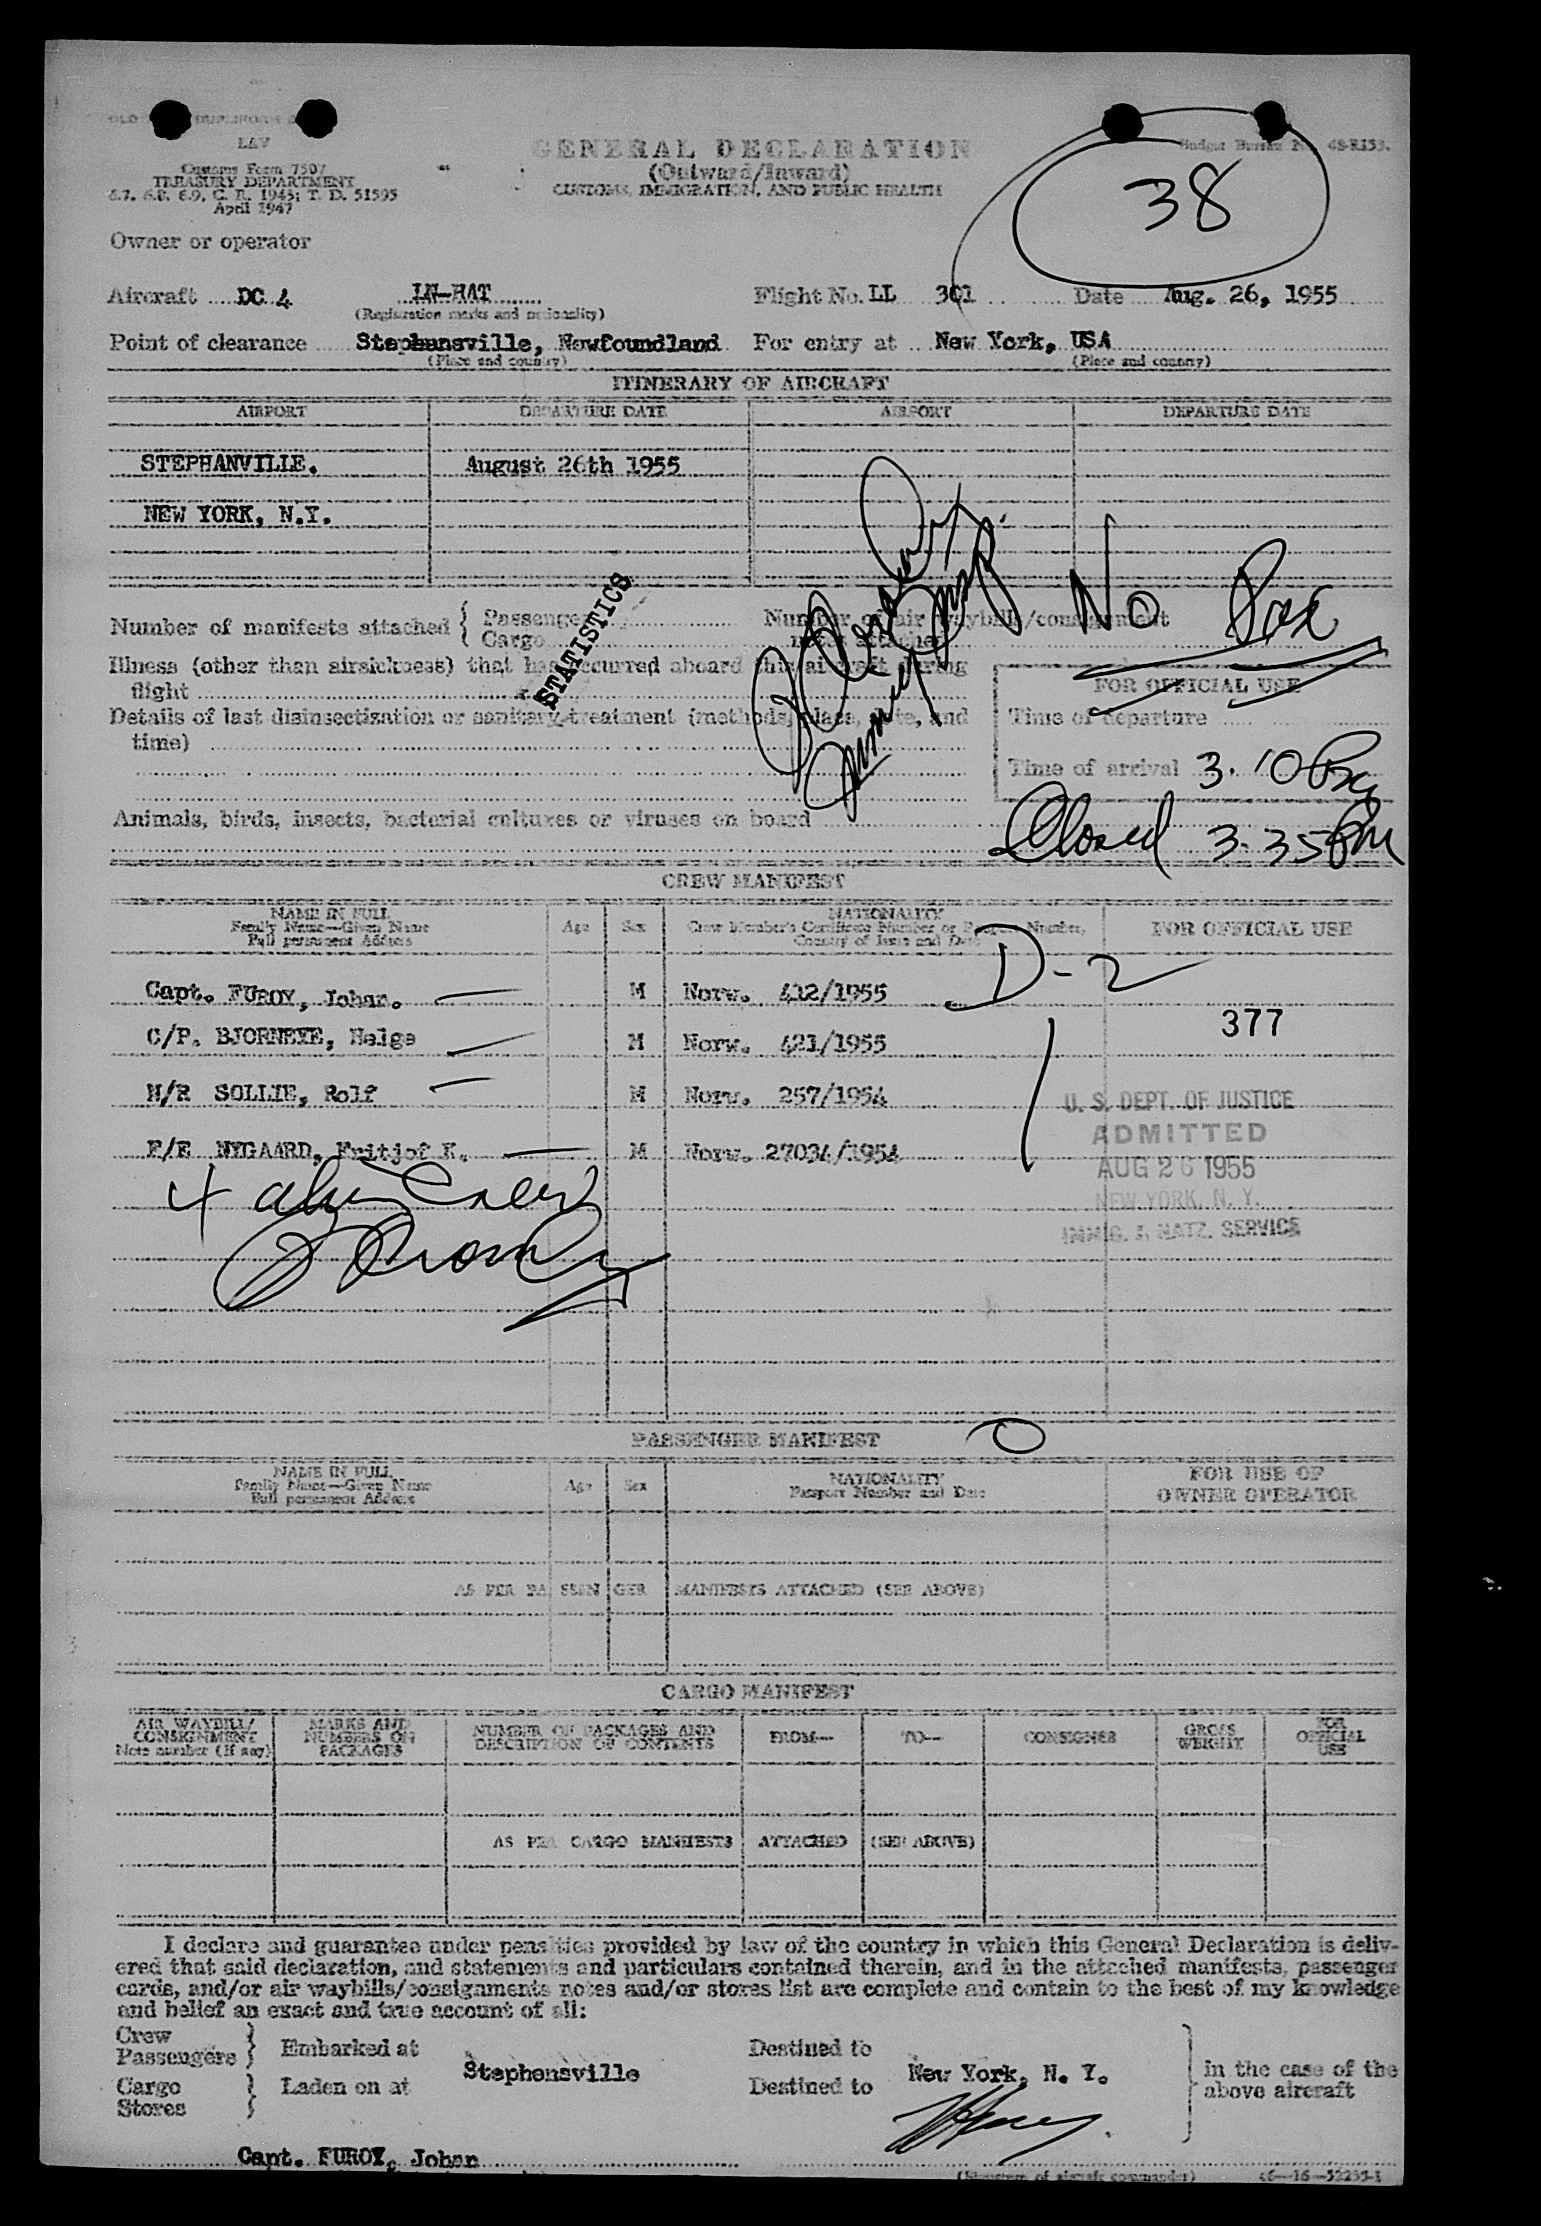 LAV
Customs Form 7507
TREASURY DEPARTMENT
6.7, 6.8, 6.9, C. R. 1943; T. D. 51595
April 1947
GENERAL DECLARATION
(Outward/Inward)
CUSTOMS, IMMIGRATION, AND PUBLIC HEALTH
Budget Bureau No. 48-R153.
38
Owner or operator
Aircraft DC 4 LN-HAT Flight No. LL 301 Date Aug. 26, 1955
(Registration marks and nationality)
Point of clearance Stephensville, Newfoundland For entry at New York, USA
(Place and country) (Place and country)
ITINERARY OF AIRCRAFT
AIRPORT DEPARTURE DATE AIRPORT DEPARTURE DATE
STEPHANVILLE. August 26th 1955
NEW YORK, N.Y.
No Pax
STATISTICS
Number of manifests attached { Passenger Number of air waybills/consignment
Cargo notes attached
Illness (other than airsickness) that has occurred aboard this aircraft during
flight
FOR OFFICIAL USE
Details of last disinsectization or sanitary treatment (methods, place, date, and
time)
Time of departure
Time of arrival 3.10 Pm
Animals, birds, insects, bacterial cultures or viruses on board
Closed 3.35 PM
CREW MANIFEST
NAME IN FULL
Family Name—Given Name
Full permanent Address
Age Sex
NATIONALITY
Crew Member's Certificate Number or Passport Number,
Country of Issue and Date
FOR OFFICIAL USE
D-2
Capt. FUROY, Johan. M Norw. 412/1955
377
C/P. BJORNEYE, Helge M Norw. 421/1955
N/R SOLLIE, Rolf M Norw. 257/1954
F/E NYGAARD, Fritjof K. M Norw. 27034/1954
U. S. DEPT. OF JUSTICE
ADMITTED
AUG 26 1955
NEW YORK, N. Y.
IMMIG. & NATZ. SERVICE
4 alien crew
PASSENGER MANIFEST 0
NAME IN FULL
Family Name—Given Name
Full permanent Address
Age Sex
NATIONALITY
Passport Number and Date
FOR USE OF
OWNER OPERATOR
AS PER PASSENGER MANIFESTS ATTACHED (SEE ABOVE)
CARGO MANIFEST
AIR WAYBILL/
CONSIGNMENT
Note number (if any)
MARKS AND
NUMBERS ON
PACKAGES
NUMBER OF PACKAGES AND
DESCRIPTION OF CONTENTS
FROM— TO— CONSIGNEE
GROSS
WEIGHT
FOR
OFFICIAL
USE
AS PER CARGO MANIFESTS ATTACHED (SEE ABOVE)
I declare and guarantee under penalties provided by law of the country in which this General Declaration is deliv-
ered that said declaration, and statements and particulars contained therein, and in the attached manifests, passenger
cards, and/or air waybills/consignments notes and/or stores list are complete and contain to the best of my knowledge
and belief an exact and true account of all:
Crew
Passengers } Embarked at Destined to
Stephensville New York, N. Y.
Cargo
Stores } Laden on at Destined to
} in the case of the
above aircraft
Capt. FUROY, Johan
(Signature of aircraft commander) 16—16—52255-1